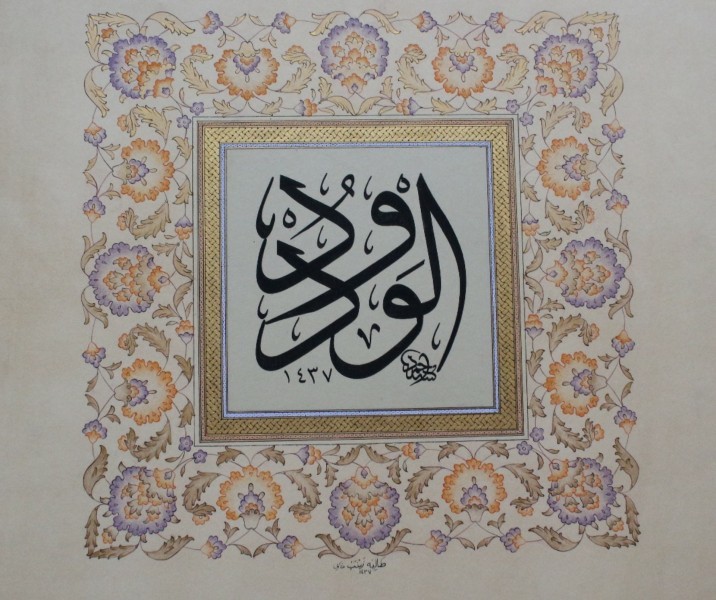 الودود
١٤٣٧